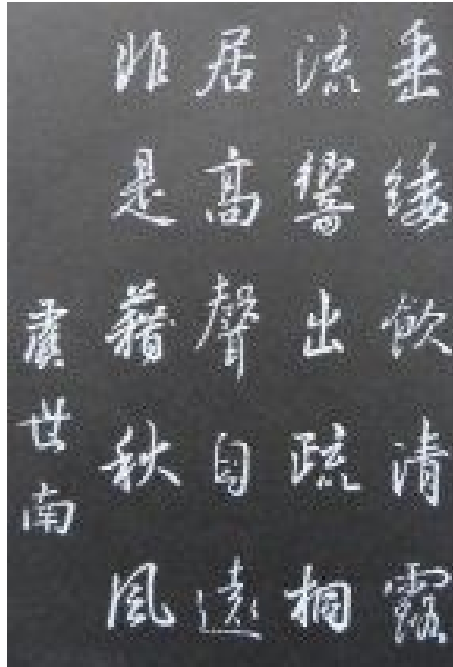 垂緌飲清露
流響出疏桐
居高聲自遠
非是藉秋風
虞世南